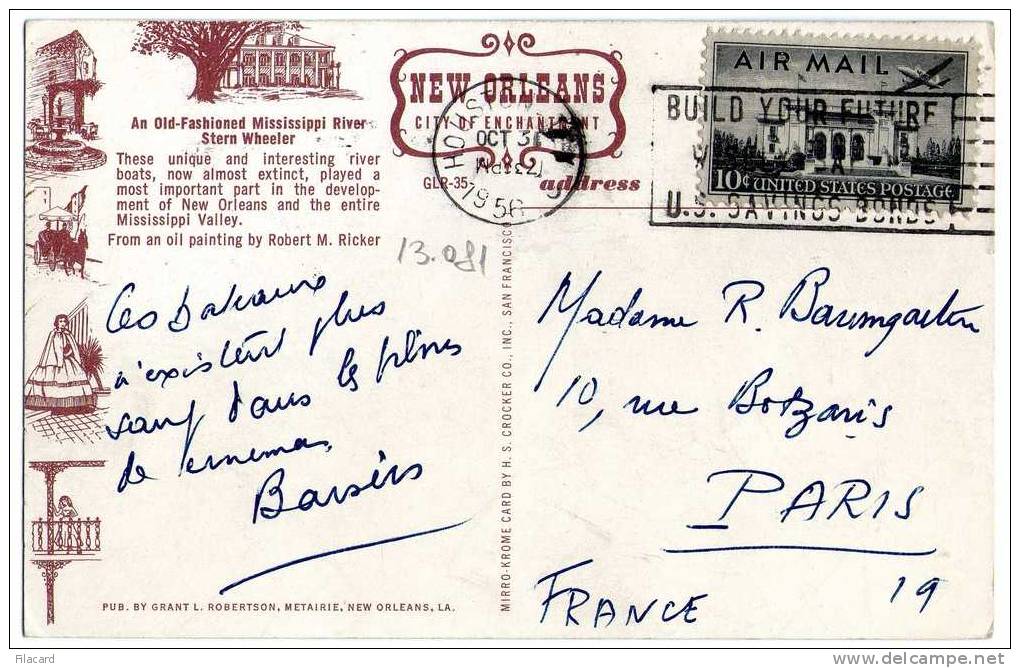 An Old-Fashioned Mississippi River
Stern Wheeler
These unique and interesting river
boats, now almost extinct, played a
most important part in the develop-
ment of New Orleans and the entire
Mississippi Valley.
From an oil painting by Robert M. Ricker
NEW ORLEANS
CITY OF ENCHANTMENT
GLR-35
address
OCT 31
PM
1956
AIR MAIL
10¢ UNITED STATES POSTAGE
BUILD YOUR FUTURE
U.S. SAVINGS BONDS
13.081
Ces bateaux
n'existent plus
sauf dans les films
de cinema.
Baisers
MIRRO-KROME CARD BY H. S. CROCKER CO., INC., SAN FRANCISCO
Madame R. Baumgarten
10, rue Botzaris
PARIS
19
FRANCE
PUB. BY GRANT L. ROBERTSON, METAIRIE, NEW ORLEANS, LA.
Filacard
delcampe.net